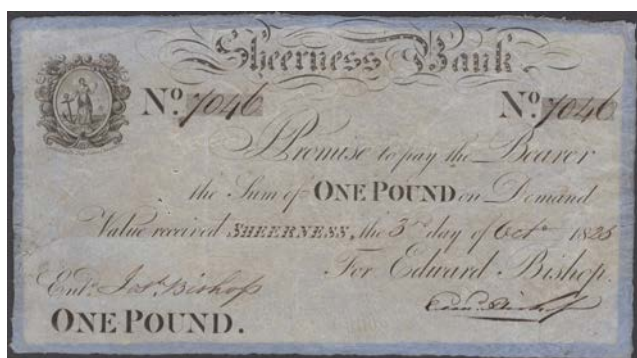 Sheerness Bank
Nº 7046 Nº 7046
I Promise to pay the Bearer
the Sum of ONE POUND on Demand
Value received SHEERNESS, the 3rd day of Octr 1825
For Edward Bishop.
Entd. Jas. Bishop
Edwd. Bishop
ONE POUND.